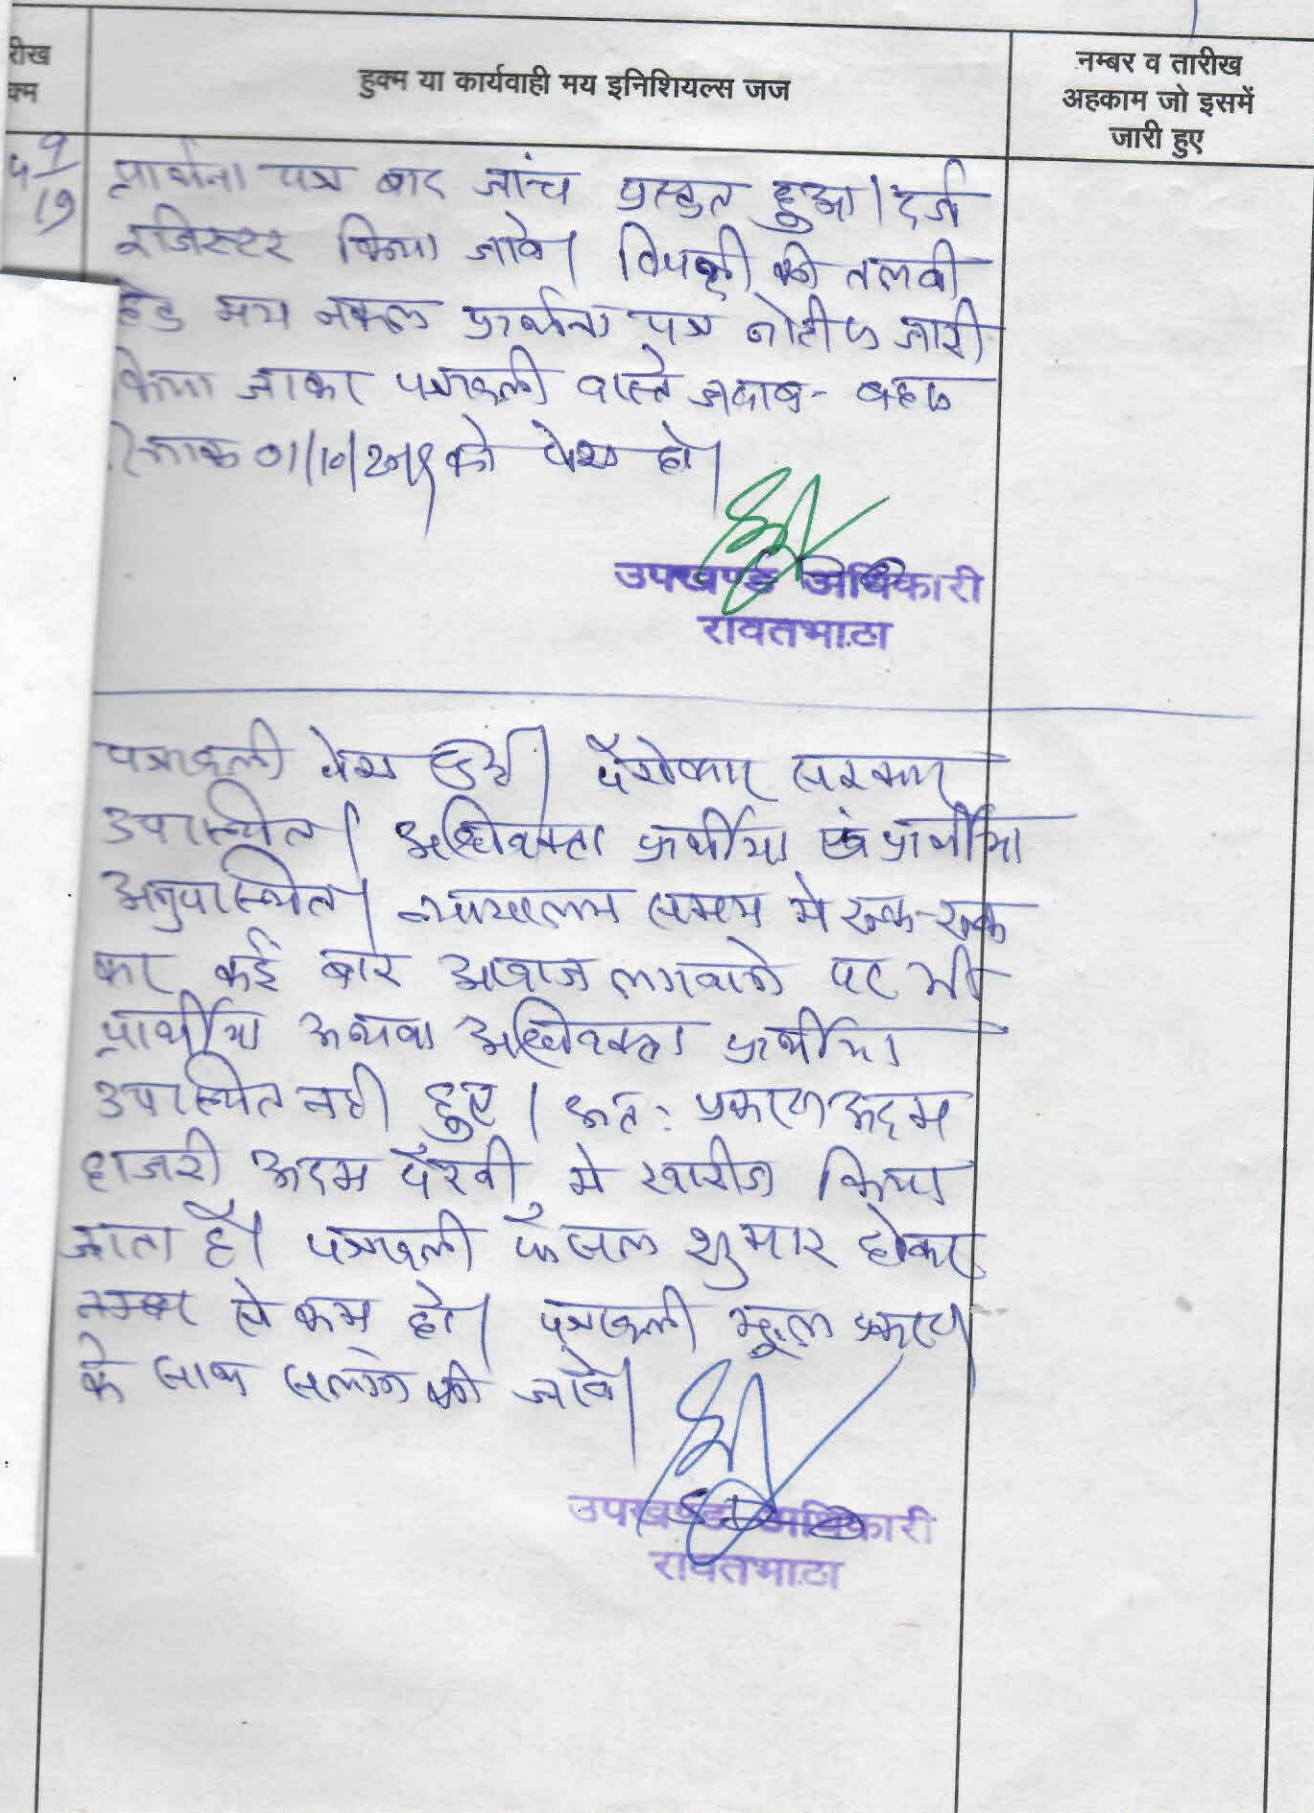 रीख
क्म
हुक्म या कार्यवाही मय इनिशियल्स जज
नम्बर व तारीख
अहकाम जो इसमें
जारी हुए
9
19
प्रार्थना पत्र बाद जांच प्रस्तुत हुआ। दर्ज
रजिस्टर किया जावे। विपक्षी की तलवी
हेतु मय नकल प्रार्थना पत्र नोटिस जारी
किया जाकर पत्रावली वास्ते जवाब- बहस
दिनांक 01/10/2019 को पेश हो।
उपखण्ड अधिकारी
रावतभाटा
पत्रावली पेश हुई। पैरोकार सरकार
उपस्थित। अधिवक्ता प्रार्थीया एवं प्रार्थीया
अनुपस्थित। न्यायालय समय मे रूक-रूक
कर कई बार आवाज लगवाने पर भी
प्रार्थीया अथवा अधिवक्ता प्रार्थीया
उपस्थित नही हुए। अतः प्रकरण अदम
हाजरी अदम पैरवी मे खारीज किया
जाता है। पत्रावली फैसल शुमार होकर
नम्बर से कम हो। पत्रावली मूल प्रकरण
के साथ सलंग्न की जावे।
उपखण्ड अधिकारी
रावतभाटा